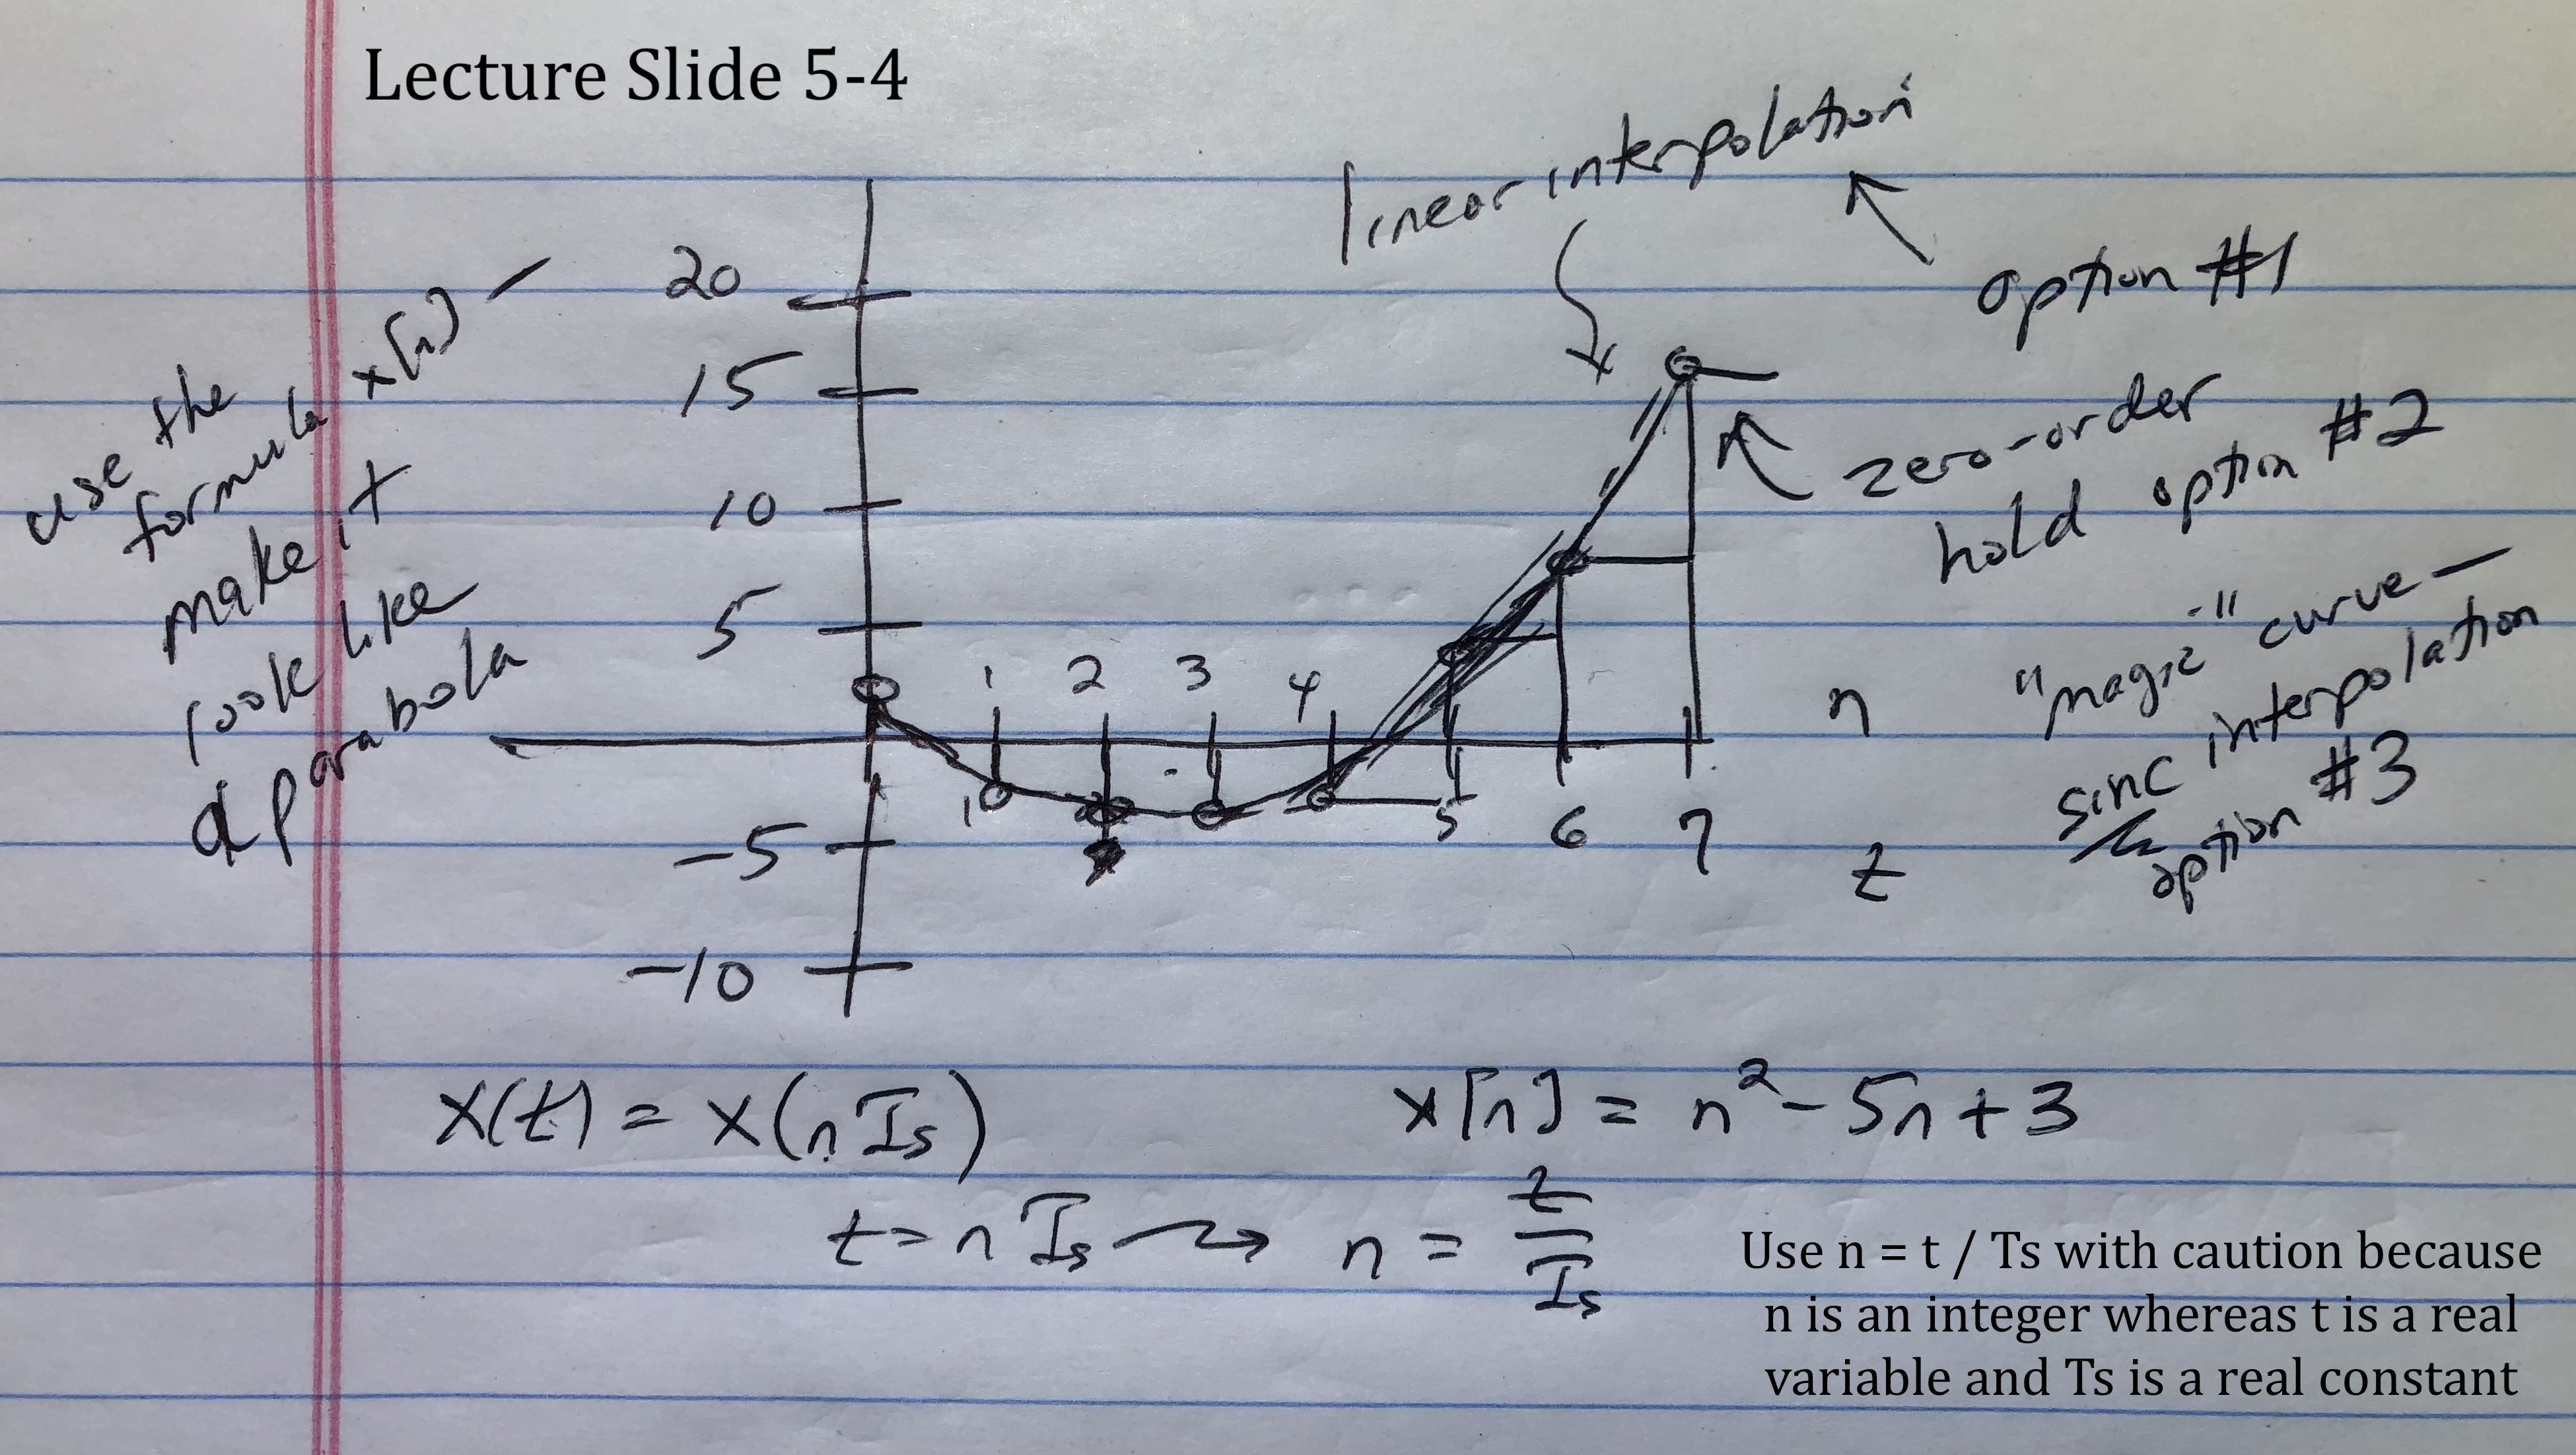 Lecture Slide 5-4
linear interpolation
option #1
20
15
10
5
-5
-10
use the
formula x[n] –
make it
look like
a parabola
zero-order
hold option #2
"magic" curve –
sinc interpolation
option #3
1 2 3 4
5 6 7
n
t
x(t) = x(nTs)
t = nTs → n = t/Ts
x[n] = n² - 5n + 3
Use n = t / Ts with caution because
n is an integer whereas t is a real
variable and Ts is a real constant